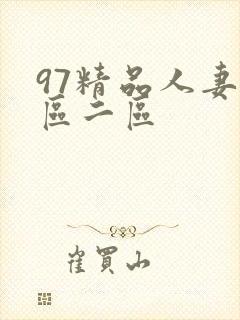 97精品人妻
區二區
崔買山